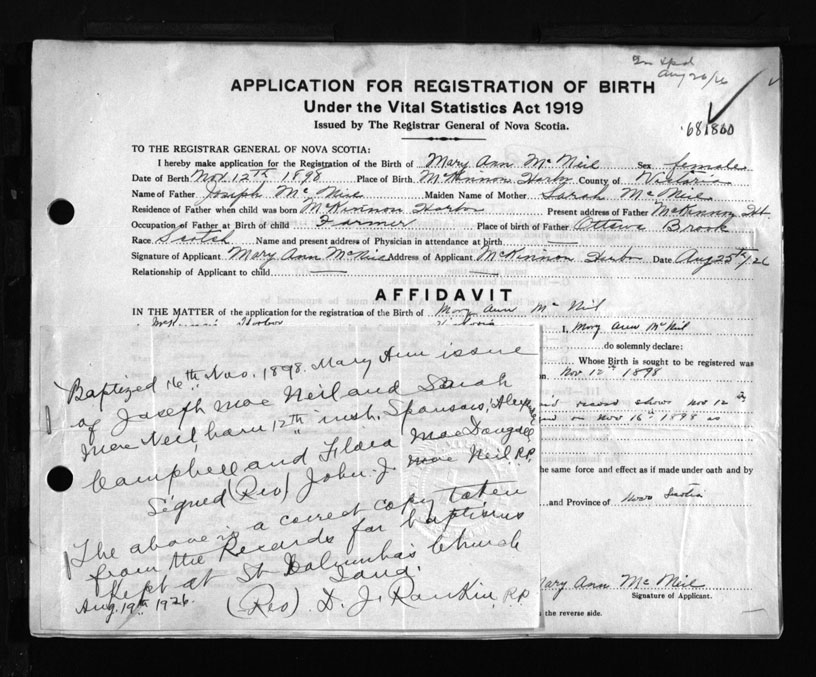 Aug 26/26
APPLICATION FOR REGISTRATION OF BIRTH
Under the Vital Statistics Act 1919
Issued by The Registrar General of Nova Scotia.
TO THE REGISTRAR GENERAL OF NOVA SCOTIA:
I hereby make application for the Registration of the Birth of Mary Ann McNeil Sex female
Date of Berth Nov. 12th 1898 Place of Birth McKinnon Harbr County of Victoria
Name of Father Joseph McNeil Maiden Name of Mother Sarah McNeil
Residence of Father when child was born McKinnon Harbor Present address of Father McKinnon Hr
Occupation of Father at Birth of child Farmer Place of birth of Father Ottawa Brook
Race Scotch Name and present address of Physician in attendance at birth
Signature of Applicant Mary Ann McNeil Address of Applicant McKinnon Harbor Date Aug 25th/26
Relationship of Applicant to child
AFFIDAVIT
IN THE MATTER of the application for the registration of the Birth of Mary Ann McNeil
Harbor I, Mary Ann McNeil
do solemnly declare:
Whose Birth is sought to be registered was
on Nov 12th 1898
record shows Nov 12
on Nov 16th 1898 as
the same force and effect as if made under oath and by
and Province of Nova Scotia
Mary Ann McNeil
Signature of Applicant.
the reverse side.
Baptized 16th Nov. 1898. Mary Ann issue
of Joseph Mac Neil and Sarah
Mac Neil, born 12th inst. Sponsors,
Campbell and Flora Mac Dougall
Signed (Rev) John. J. Mac Neil P.P.
The above is a correct copy taken
from the Records for baptisms
Kept at St Columba's Church
Iona.
Aug. 19th 1926. (Rev) D. J. Rankin, P.P.